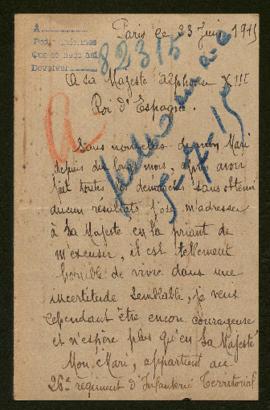 A
82315
Paris ce 23 Juin 1915
A Sa Majesté Alphonse XIII
Roi d'Espagne.
Sans nouvelles de mon Mari
depuis de longs mois, après avoir
fait toutes les demandes sans obtenir
aucun résultats j'ose m'adresser
à Sa Majesté en la priant de
m'excuser, il est tellement
horrible de vivre dans une
incertitude semblable, je veux
cependant être encore courageuse
et n'espère plus qu'en Sa Majesté
Mon Mari, appartient au
26e régiment d'Infanterie Territorial